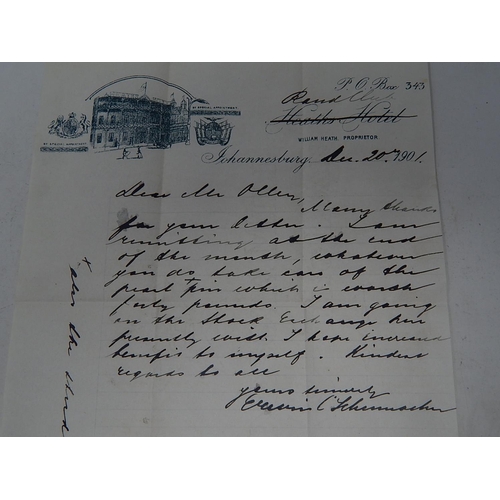 P.O. Box 345
Rand Club
Heath's Hotel
WILLIAM HEATH, PROPRIETOR
BY SPECIAL APPOINTMENT
BY SPECIAL APPOINTMENT
Johannesburg, Dec. 20th 1901.
Dear Mr Oller,
Many thanks
for your letter. I am
remitting at the end
of the month, whatever
you do take care of the
pearl pin which is worth
forty pounds. I am going
on the Stock Exchange here
presently with I hope increased
benefit to myself. Kindest
regards to all
yours sincerely
+ also the stud